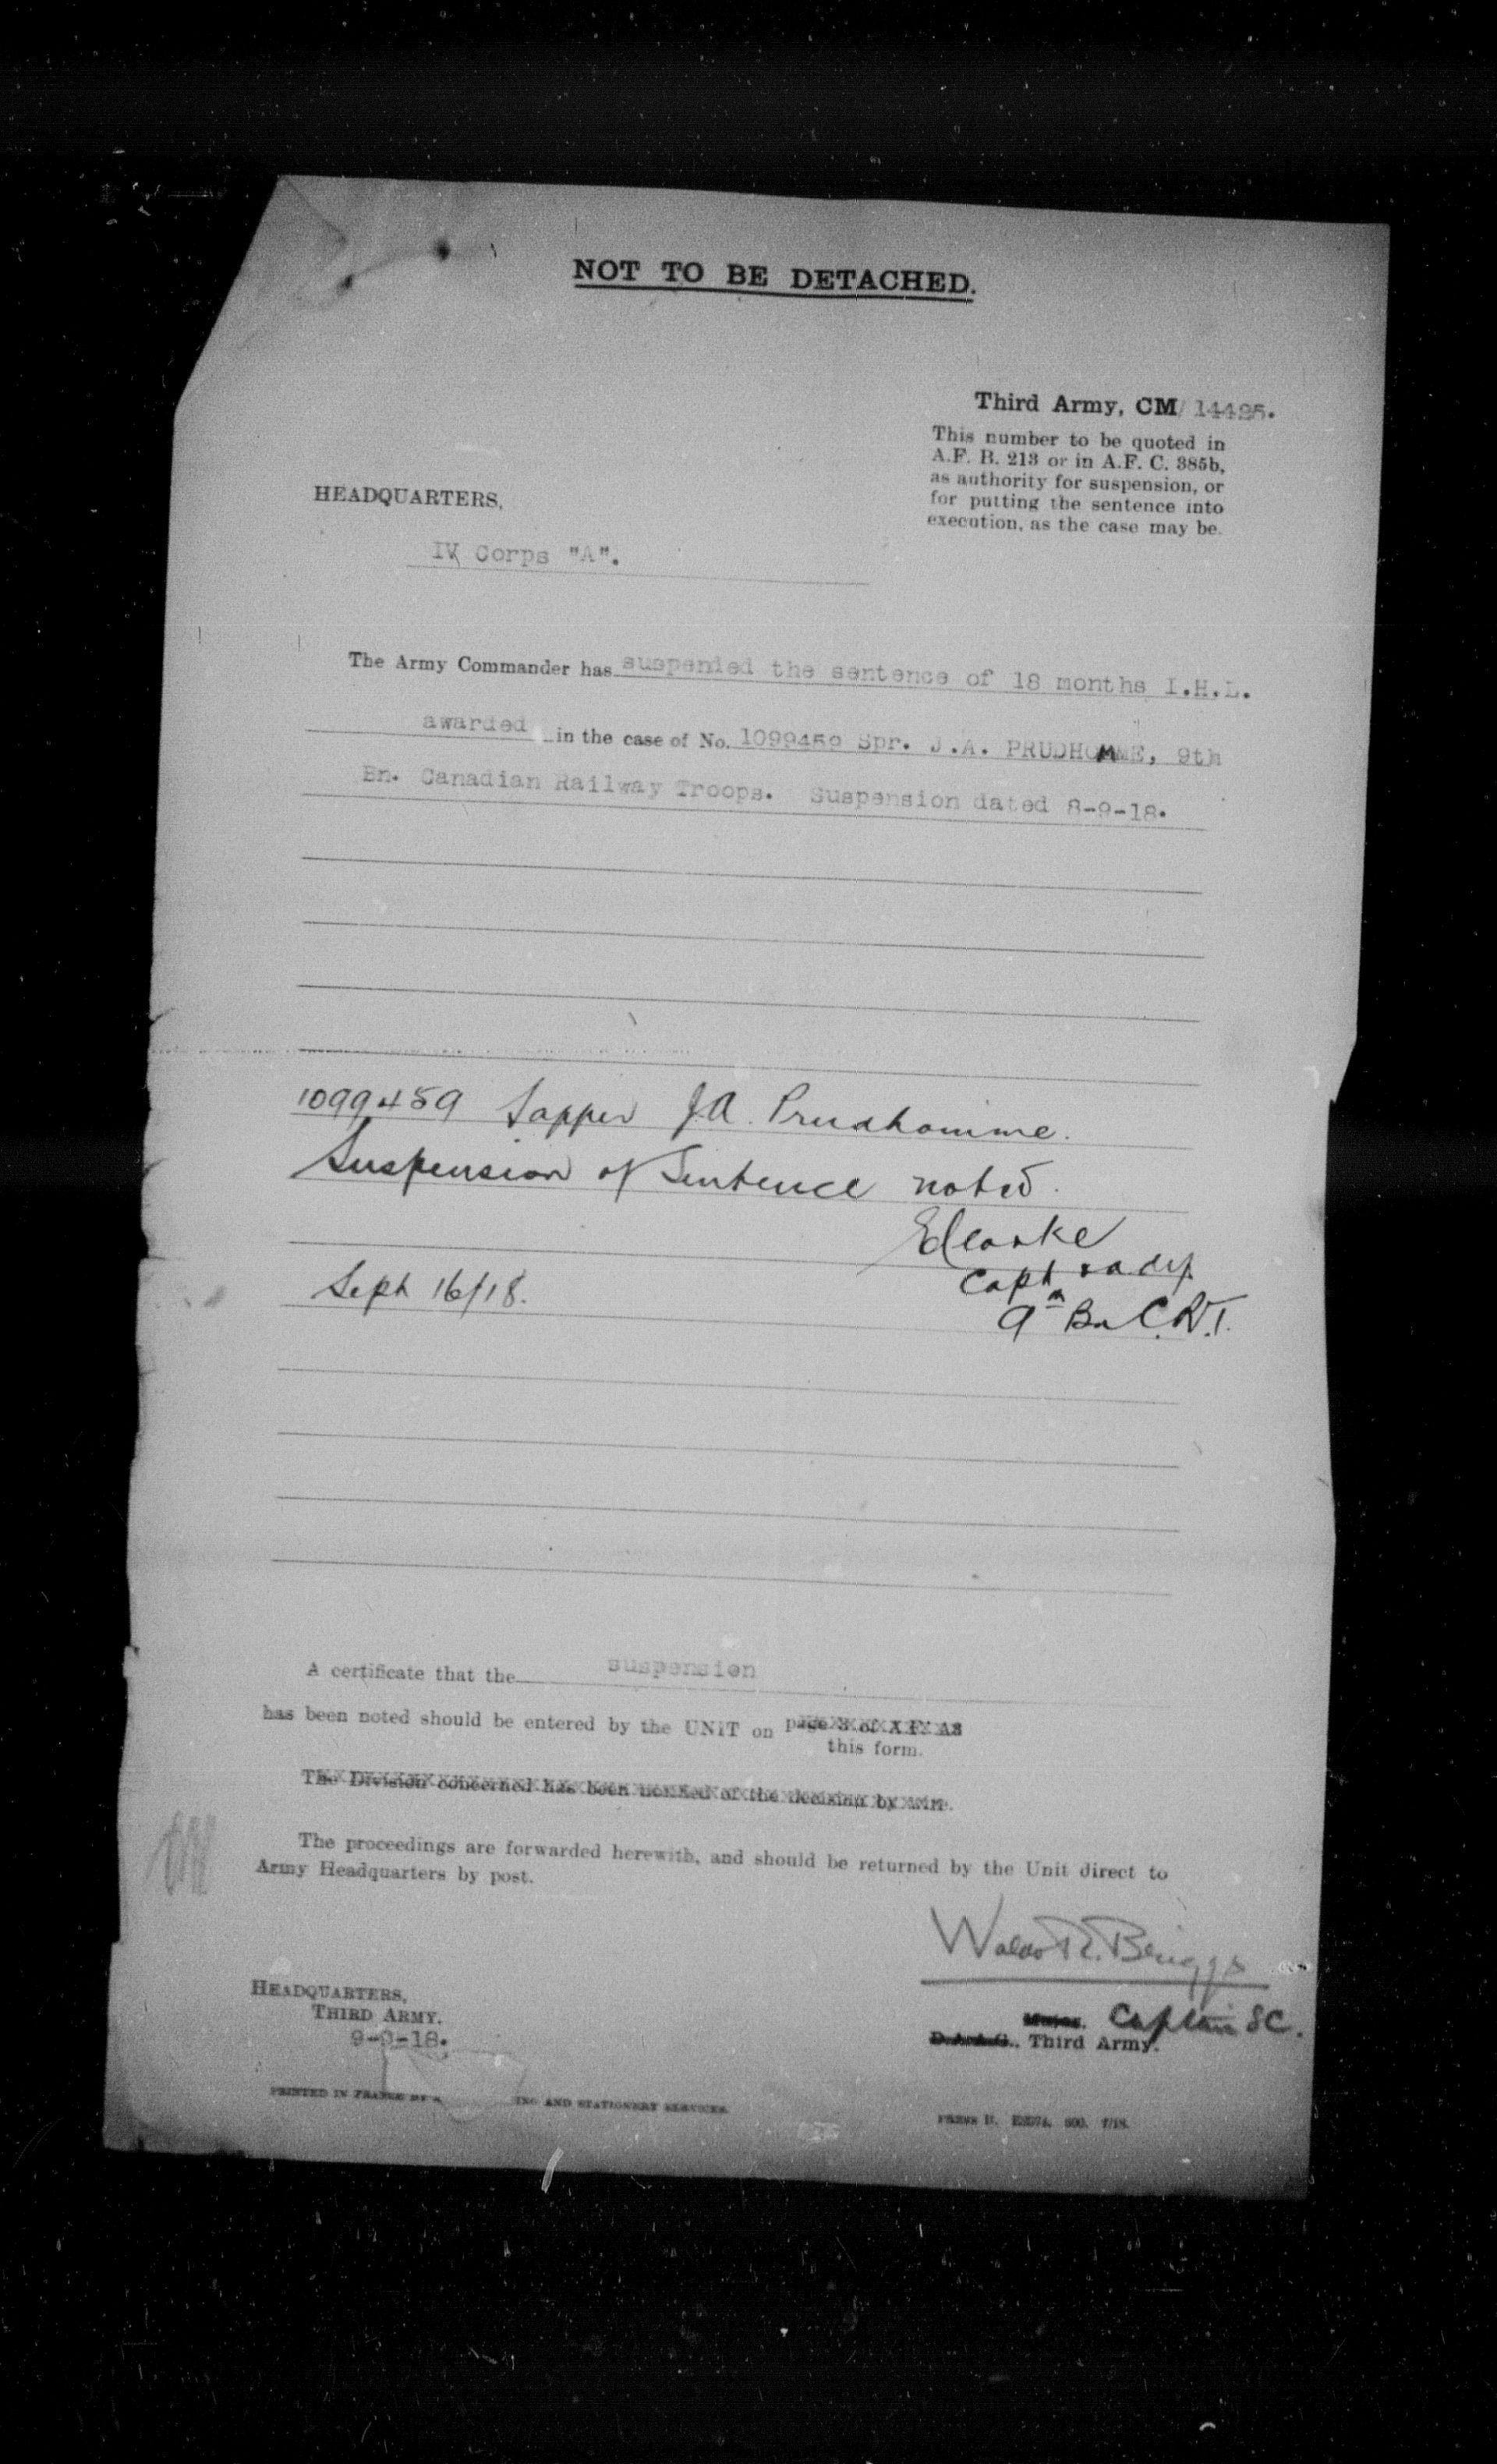 NOT TO BE DETACHED.
Third Army, CM/ 14485.
This number to be quoted in
A.F. B. 213 or in A.F. C. 385b,
as authority for suspension, or
for putting the sentence into
execution, as the case may be.
HEADQUARTERS,
IV Corps "A".
The Army Commander has suspended the sentence of 18 months I.H.L.
awarded in the case of No. 1099459 Spr. J.A. PRUDHOMME, 9th
Bn. Canadian Railway Troops. Suspension dated 8-9-18.
1099459 Sapper J.A. Prudhomme.
Suspension of Sentence noted.
Capt & adj
Sept 16/18.
9th Bn C.R.T.
A certificate that the suspension
has been noted should be entered by the UNIT on page 3 of A.F. A3
this form.
The Division concerned has been notified of the decision by wire.
The proceedings are forwarded herewith, and should be returned by the Unit direct to
Army Headquarters by post.
Waldo R. Briggs
HEADQUARTERS,
THIRD ARMY.
9-9-18.
Major. Captain SC.
D.A.A.G. Third Army.
PRINTED IN FRANCE BY ING AND STATIONERY SERVICES.
PRESS